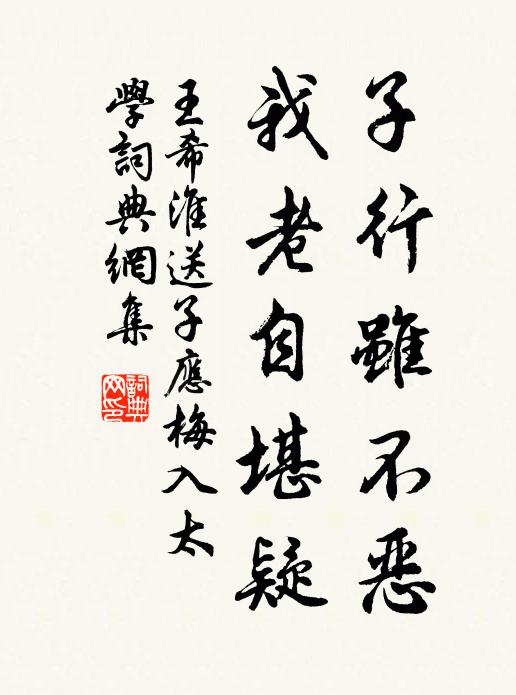 子行雖不惡
我老自堪疑
王希淮送子應梅入太
學詞典網集
詞典
网印